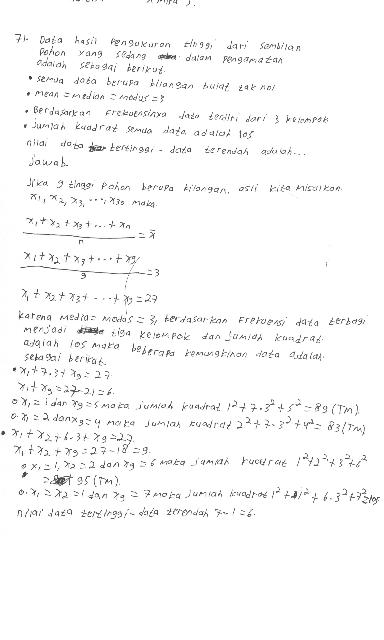 71. Data hasil pengukuran tinggi dari sembilan
pohon yang sedang dalam pengamatan
adalah sebagai berikut.
• semua data berupa bilangan bulat tak nol
• mean = median = modus = 3
• Berdasarkan Frekuensinya data terdiri dari 3 kelompok
• Jumlah kuadrat semua data adalah 105
nilai data tertinggi - data terendah adalah...
Jawab.
Jika 9 tinggi pohon berupa bilangan asli kita misalkan
x₁, x₂, x₃, ..., x₉ maka.
x₁ + x₂ + x₃ + ... + xn
n = x̄
x₁ + x₂ + x₃ + ... + x₉
9 = 3
x₁ + x₂ + x₃ + ... + x₉ = 27
karena median = modus = 3, berdasarkan Frekuensi data terbagi
menjadi tiga kelompok dan jumlah kuadrat
adalah 105 maka beberapa kemungkinan data adalah
sebagai berikut.
• x₁ + 7.3 + x₉ = 27
x₁ + x₉ = 27 - 21 = 6.
o x₁ = 1 dan x₉ = 5 maka jumlah kuadrat 1² + 7.3² + 5² = 89 (TM)
o. x₁ = 2 dan x₉ = 4 maka jumlah kuadrat 2² + 7.3² + 4² = 83 (TM)
• x₁ + x₂ + 6.3 + x₉ = 27.
x₁ + x₂ + x₉ = 27 - 18 = 9.
o x₁ = 1, x₂ = 2 dan x₉ = 6 maka jumlah kuadrat 1² + 2² + 6.3² + 6²
= 95 (TM).
o. x₁ = x₂ = 1 dan x₉ = 7 maka jumlah kuadrat 1² + 1² + 6.3² + 7² = 105
nilai data tertinggi - data terendah 7 - 1 = 6.